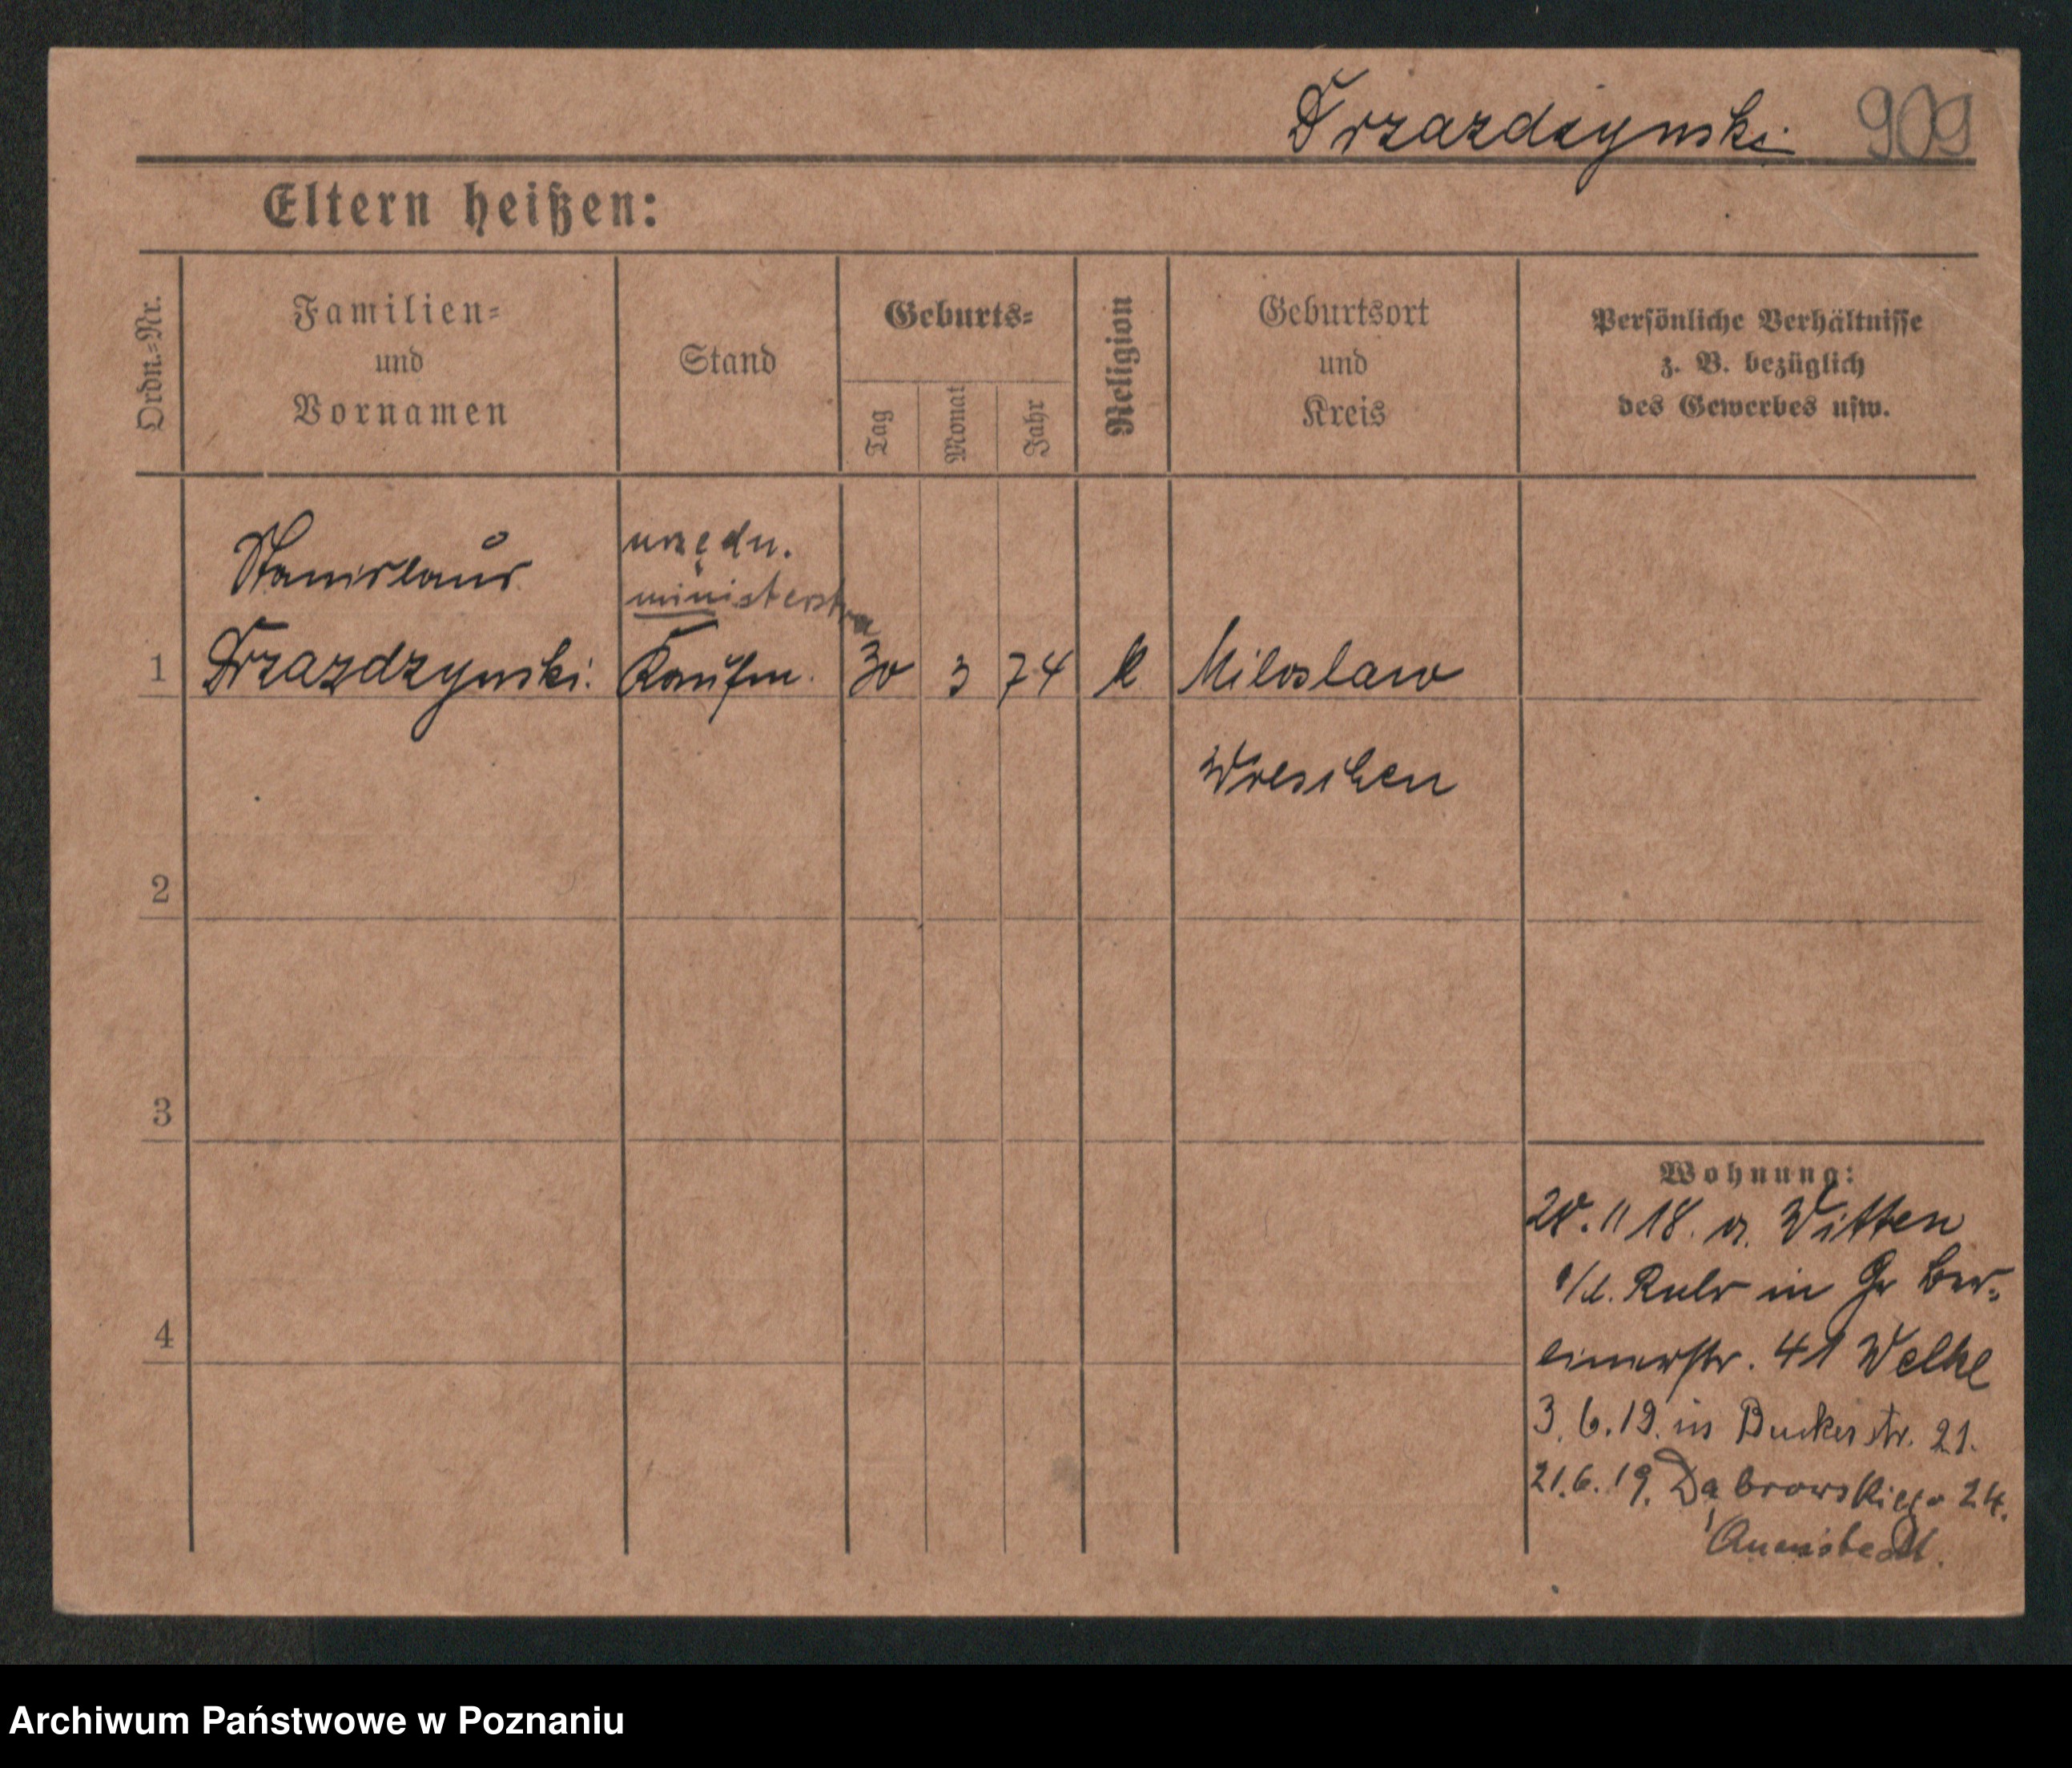 Drzazdzynski 909
Eltern heißen:
Ordn.=Nr.
Familien=
und
Vornamen
Stand
Geburts=
Tag
Monat
Jahr
Religion
Geburtsort
und
Kreis
Persönliche Verhältnisse
z. B. bezüglich
des Gewerbes usw.
Stanislaus
urzędn.
ministerstwa
1 Drzazdzynski. Kaufm. 30 3 74 k Miloslaw
Wreschen
2
3
4
Wohnung:
20. 11 18. a. Witten
a/d. Ruhr in Gr Ber=
linerstr. 41 Welke
3. 6. 19. in Bukerstr. 21.
21. 6. 19. Dąbrowskiego 24.
Archiwum Państwowe w Poznaniu